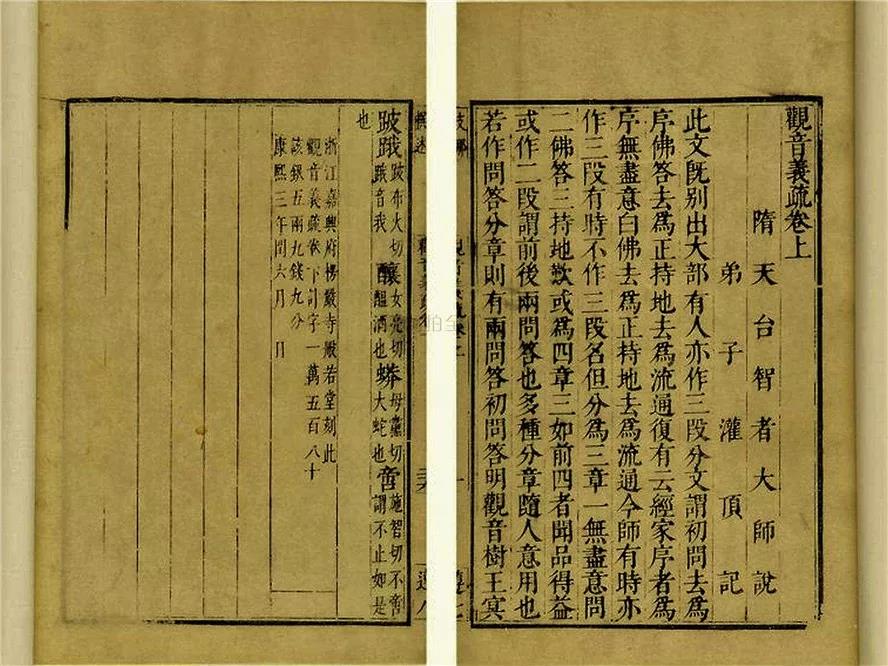 觀音義疏卷上
隋天台智者大師說
弟子灌頂記
此文既別出大部有人亦作三段分文謂初問去爲
序佛答去爲正持地去爲流通復有云經家序者爲
序無盡意白佛去爲正持地去爲流通今師有時亦
作三段有時不作三段名但分爲三章一無盡意問
二佛答三持地歎或爲四章三如前四者聞品得益
或作二段謂前後兩問答也多種分章隨人意用也
若作問答分章則有兩問答初問答明觀音樹王冥
跛跋布火切䟦音我釀女亮切醖酒也蟒母黨切大蛇也啻施智切不啻謂不止如是
也
浙江嘉興府楞嚴寺般若堂刻此
觀音義疏卷下計字一萬五百八十
該銀五兩九錢九分
康熙三年閏六月 日